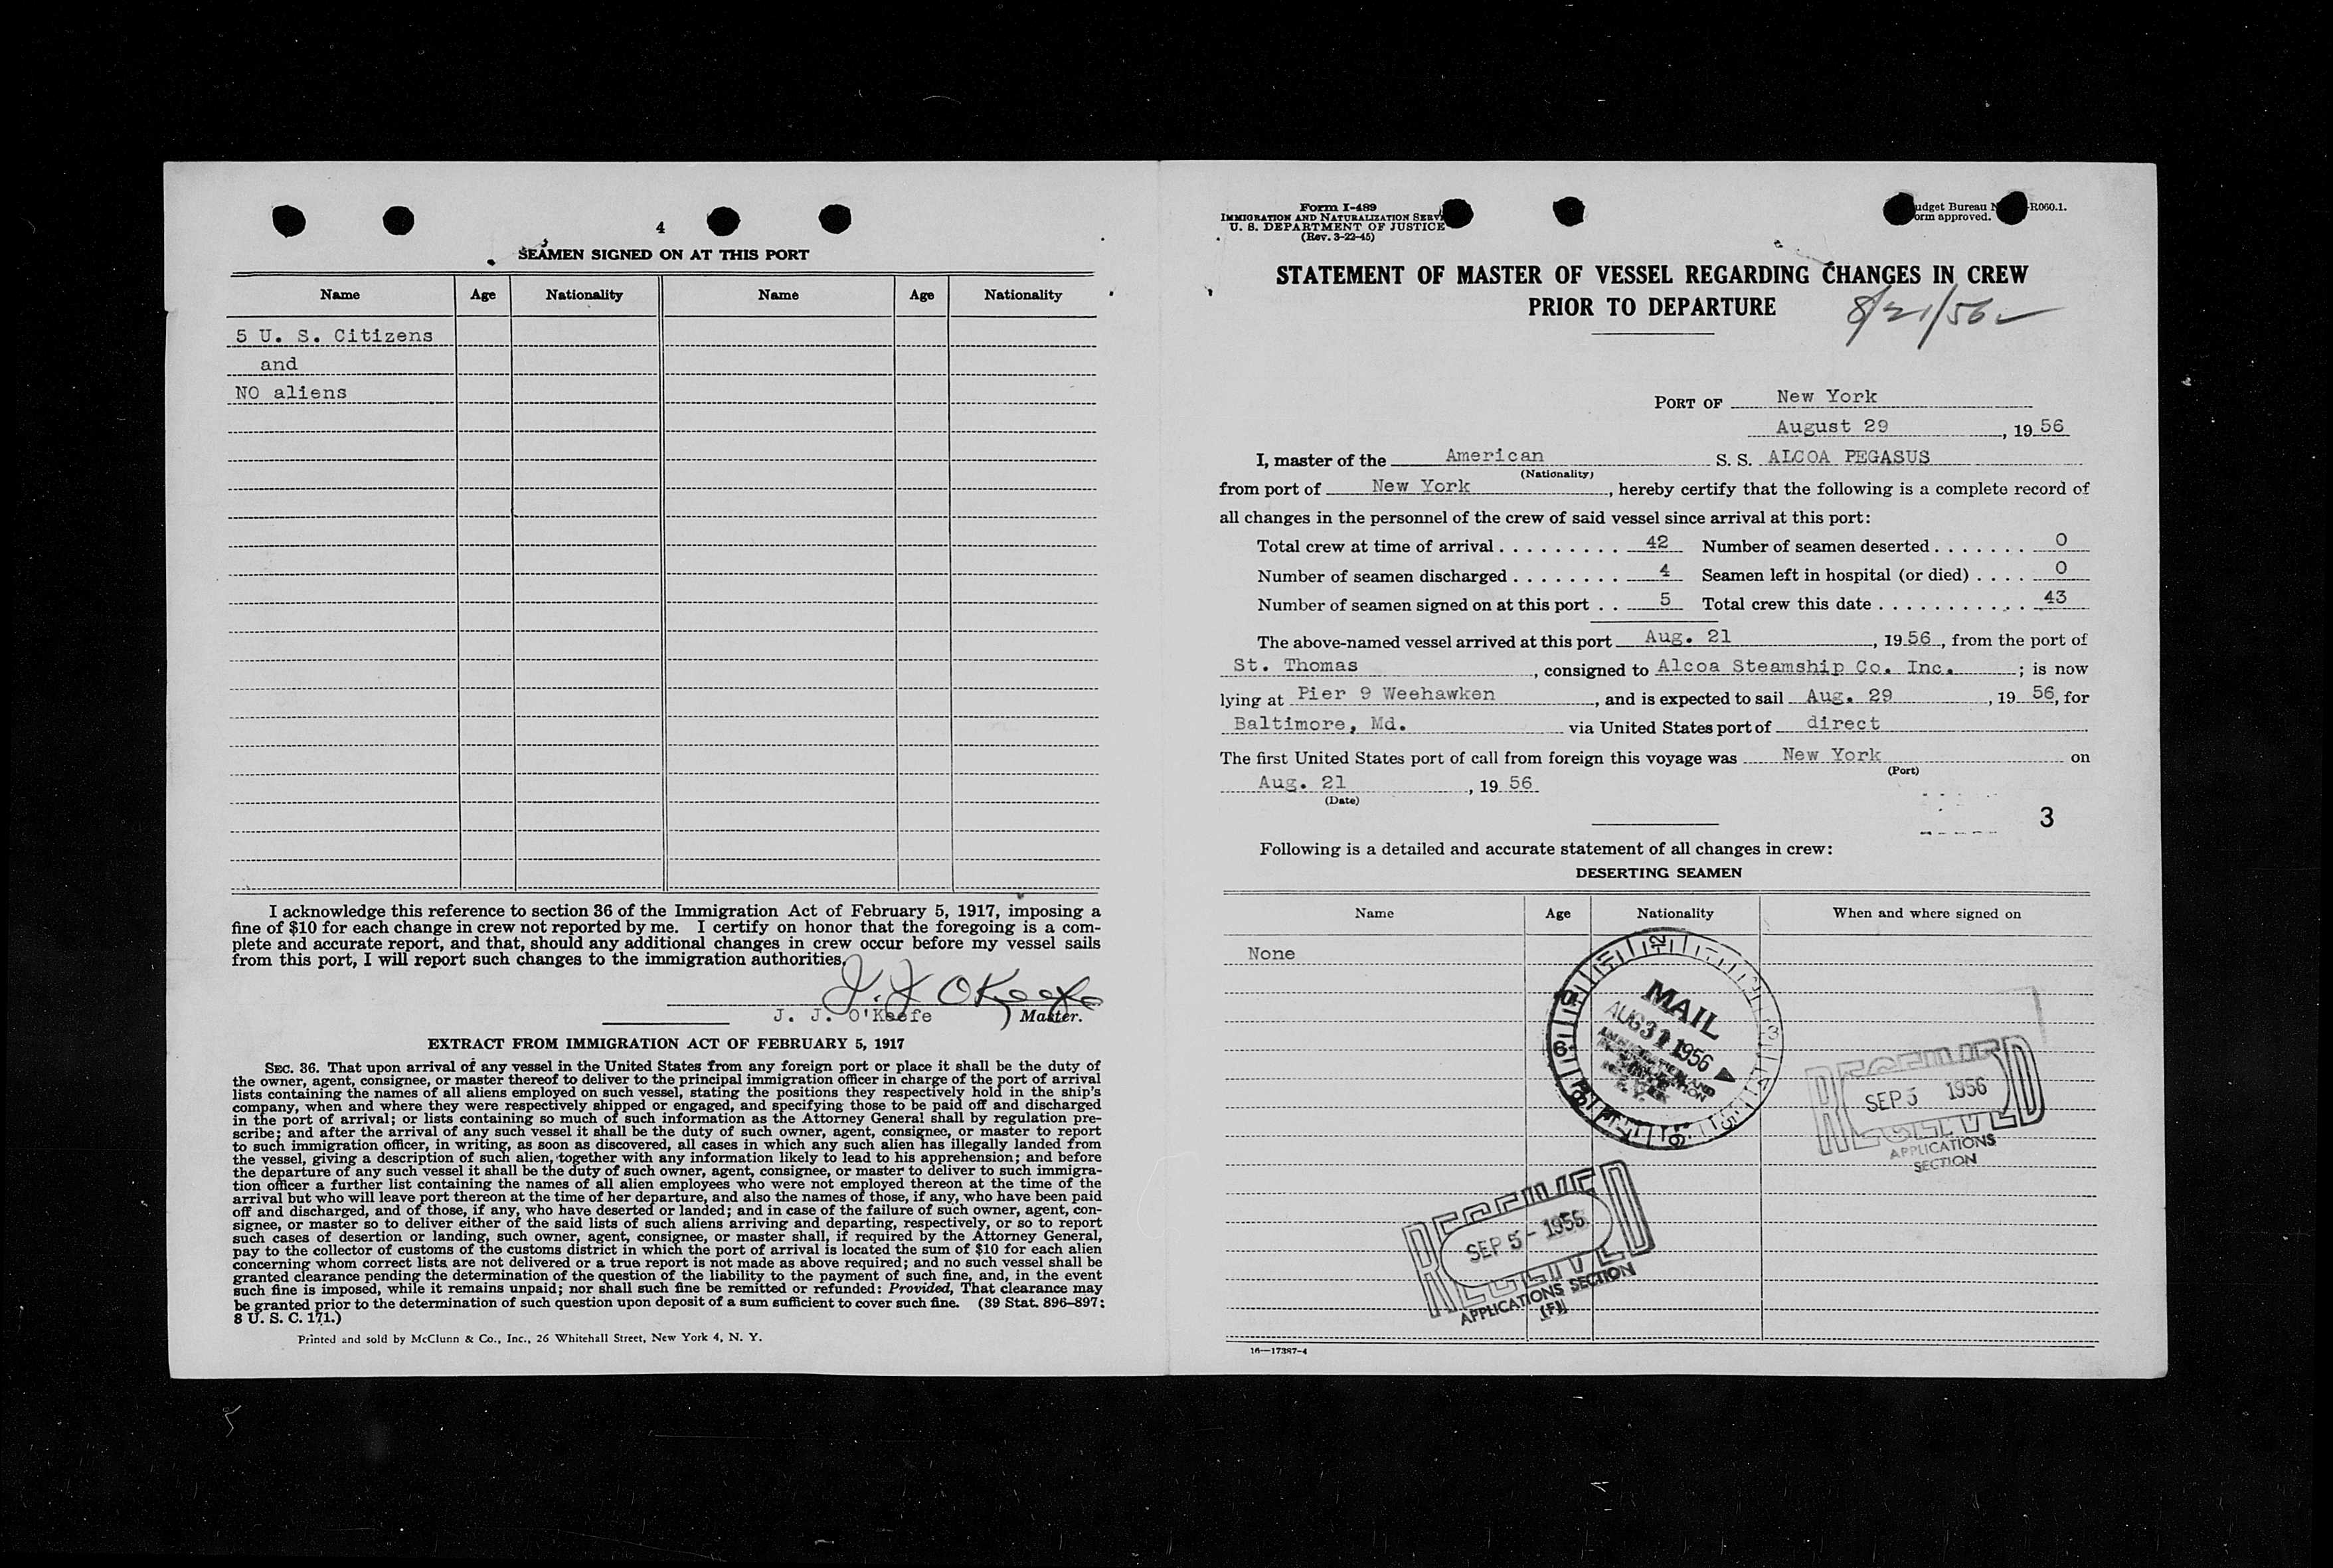 4
SEAMEN SIGNED ON AT THIS PORT
Name Age Nationality Name Age Nationality
5 U. S. Citizens
and
NO aliens
I acknowledge this reference to section 36 of the Immigration Act of February 5, 1917, imposing a
fine of $10 for each change in crew not reported by me. I certify on honor that the foregoing is a com-
plete and accurate report, and that, should any additional changes in crew occur before my vessel sails
from this port, I will report such changes to the immigration authorities.
J. J O'Keefe
J. J. O'Keefe Master.
EXTRACT FROM IMMIGRATION ACT OF FEBRUARY 5, 1917
SEC. 36. That upon arrival of any vessel in the United States from any foreign port or place it shall be the duty of
the owner, agent, consignee, or master thereof to deliver to the principal immigration officer in charge of the port of arrival
lists containing the names of all aliens employed on such vessel, stating the positions they respectively hold in the ship's
company, when and where they were respectively shipped or engaged, and specifying those to be paid off and discharged
in the port of arrival; or lists containing so much of such information as the Attorney General shall by regulation pre-
scribe; and after the arrival of any such vessel it shall be the duty of such owner, agent, consignee, or master to report
to such immigration officer, in writing, as soon as discovered, all cases in which any such alien has illegally landed from
the vessel, giving a description of such alien, together with any information likely to lead to his apprehension; and before
the departure of any such vessel it shall be the duty of such owner, agent, consignee, or master to deliver to such immigra-
tion officer a further list containing the names of all alien employees who were not employed thereon at the time of the
arrival but who will leave port thereon at the time of her departure, and also the names of those, if any, who have been paid
off and discharged, and of those, if any, who have deserted or landed; and in case of the failure of such owner, agent, con-
signee, or master so to deliver either of the said lists of such aliens arriving and departing, respectively, or so to report
such cases of desertion or landing, such owner, agent, consignee, or master shall, if required by the Attorney General,
pay to the collector of customs of the customs district in which the port of arrival is located the sum of $10 for each alien
concerning whom correct lists are not delivered or a true report is not made as above required; and no such vessel shall be
granted clearance pending the determination of the question of the liability to the payment of such fine, and, in the event
such fine is imposed, while it remains unpaid; nor shall such fine be remitted or refunded: Provided, That clearance may
be granted prior to the determination of such question upon deposit of a sum sufficient to cover such fine. (39 Stat. 896–897;
8 U. S. C. 171.)
Printed and sold by McClunn & Co., Inc., 26 Whitehall Street, New York 4, N. Y.
Form I-489
IMMIGRATION AND NATURALIZATION SERV
U. S. DEPARTMENT OF JUSTICE
(Rev. 3-22-45)
udget Bureau N -R060.1.
orm approved.
STATEMENT OF MASTER OF VESSEL REGARDING CHANGES IN CREW
PRIOR TO DEPARTURE
8/21/56
PORT OF New York
August 29, 19 56
I, master of the American S. S. ALCOA PEGASUS
(Nationality)
from port of New York, hereby certify that the following is a complete record of
all changes in the personnel of the crew of said vessel since arrival at this port:
Total crew at time of arrival 42 Number of seamen deserted 0
Number of seamen discharged 4 Seamen left in hospital (or died) 0
Number of seamen signed on at this port 5 Total crew this date 43
The above-named vessel arrived at this port Aug. 21, 19 56, from the port of
St. Thomas, consigned to Alcoa Steamship Co. Inc.; is now
lying at Pier 9 Weehawken, and is expected to sail Aug. 29, 19 56, for
Baltimore, Md. via United States port of direct
The first United States port of call from foreign this voyage was New York on
(Port)
Aug. 21, 19 56
(Date)
3
Following is a detailed and accurate statement of all changes in crew:
DESERTING SEAMEN
Name Age Nationality When and where signed on
None
MAIL
AUG 31 1956
RECEIVED
SEP 5 1956
APPLICATIONS
SECTION
RECEIVED
SEP 5 - 1956
APPLICATIONS SECTION
(F)
16—17387-4